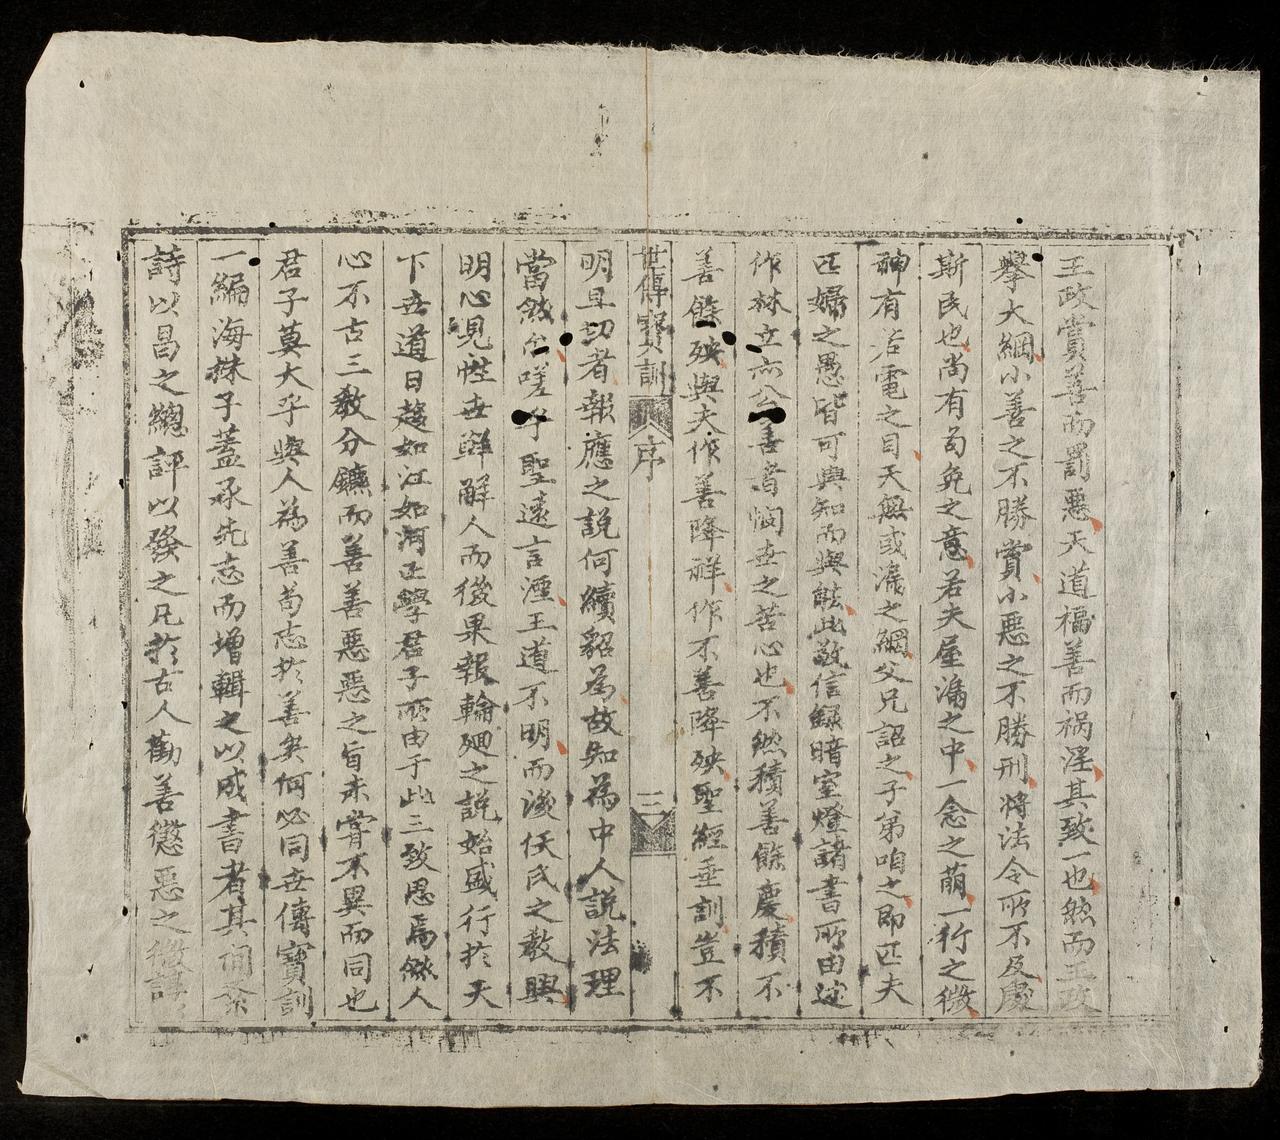 王政賞善而罰惡天道福善而祸淫其致一也然而王政
舉大綱小善之不勝賞小惡之不勝刑将法令所不及處
斯民也尚有苟免之意若夫屋漏之中一念之萠一行之微
神有若電之目天無或漏之網父兄詔之子弟咱之即匹夫
匹婦之愚皆可與知而與能此敬信録暗室燈諸書所由迹
作林立亦公善者悯世之苦心也不然積善餘慶積不
善餘殃與夫作善降祥作不善降殃聖經垂訓豈不
世傳寳訓 序 三
明且切者報應之說何續貂為故知為中人説法理
當然 嗟乎聖遠言湮王道不明而後佚氏之教興
明心見性世鮮解人而後果報輪廻之説始盛行扵天
下世道日趍如江如河正學君子所由于此三致思焉僉人
心不古三教分鑣而善善惡惡之旨未甞不異而同也
君子莫大乎與人為善苟志扵善矣何必同世傳寶訓
一編海株子蓋承先志而增輯之以成書者其間
詩以昌之總評以發之凡扵古人勸善懲惡之微